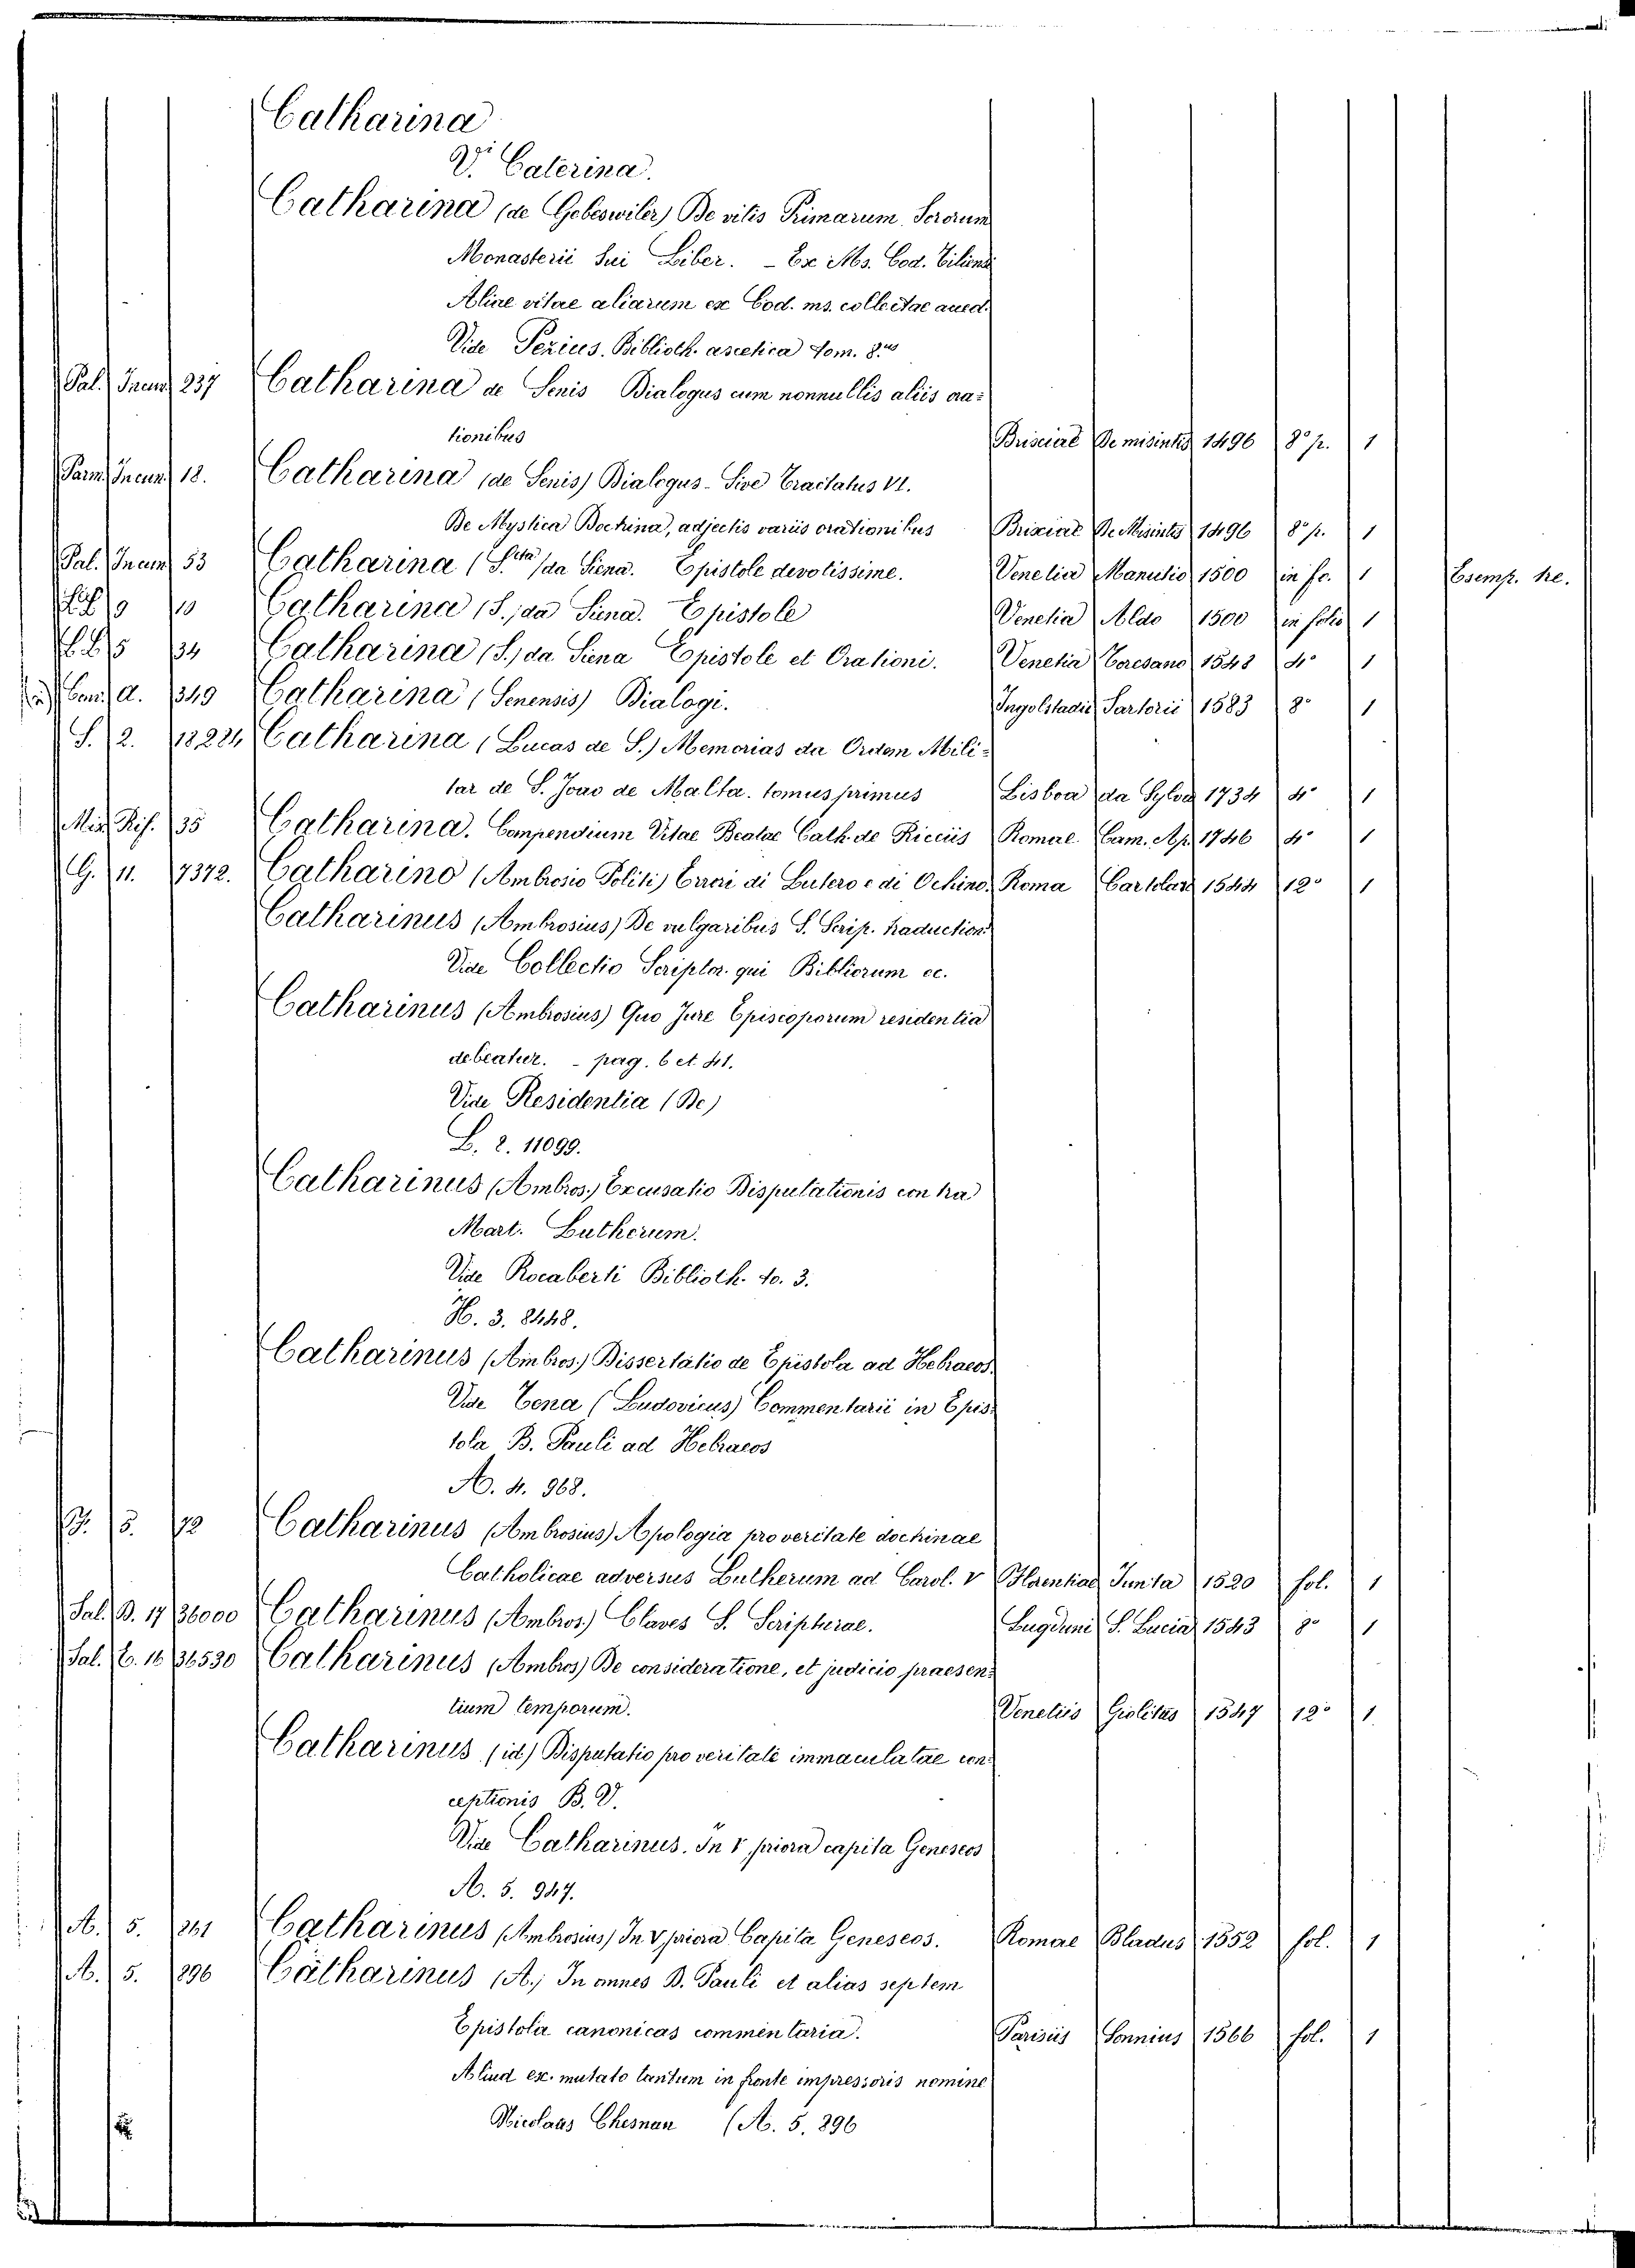 Catharina
V.i Caterina.
Catharina (de Gebeswiler) De vitis Primarum Sororum
Monasterii Sui Liber. - Ex Ms. Cod.
Aliae vitae aliarum ex Cod. ms. collectae aned.
Vide Pezius. Biblioth. ascetica tom. 8.us
Pal. Incun. 237 Catharina de Senis Dialogus cum nonnullis aliis ora=
tionibus Brisciae De misintis 1496 8° p. 1
Parm. Incun. 18. Catharina (de Senis) Dialogus - Sive Tractatus VI.
De Mystica Doctrina, adjectis variis orationibus Brixiae De Misintis 1496 8° p. 1
Pal. Incun. 53 Catharina (S.cta) da Siena. Epistole devotissime. Venetia Manutio 1500 in fo. 1 Esemp. tre.
9 10 Catharina (S.) da Siena. Epistole Venetia Aldo 1500 in folio 1
5 34 Catharina (S.) da Siena Epistole et Orationi. Venetia Toresano 1548 4° 1
Cam. a. 349 Catharina (Senensis) Dialogi. Ingolstadii Sartorii 1583 8° 1
S. 2. 18224 Catharina (Lucas de S.) Memorias da Ordem Mili=
tar de S. Joao de Malta. tomus primus Lisboa da Sylva 1734 4° 1
Min. Rif. 35 Catharina. Compendium Vitae Beatae Cath. de Ricciis Romae Cam. Ap. 1746 4° 1
G. 11. 7372. Catharino (Ambrosio Politi) Errori di Lutero e di Ochino. Roma Cartolari 1544 12° 1
Catharinus (Ambrosius) De vulgaribus S. Scrip. traduction.
Vide Collectio Scriptor. qui Bibliorum ec.
Catharinus (Ambrosius) Quo Jure Episcoporum residentia
debeatur. - pag. 6 et 41.
Vide Residentia (De)
L. 2. 11099.
Catharinus (Ambros.) Excusatio Disputationis contra
Mart. Lutherum.
Vide Rocaberti Biblioth. to. 3.
H. 3. 8448.
Catharinus (Ambros.) Dissertatio de Epistola ad Hebraeos.
Vide Tena (Ludovicus) Commentarii in Epis=
tola B. Pauli ad Hebraeos
A. 4. 968.
5. 72 Catharinus (Ambrosius) Apologia pro veritate doctrinae
Catholicae adversus Lutherum ad Carol. V Florentiae Junta 1520 fol. 1
Sal. B. 17 36000 Catharinus (Ambros.) Claves S. Scripturae. Lugduni S. Lucia 1543 8° 1
Sal. C. 16 36530 Catharinus (Ambros) De consideratione, et judicio praesen=
tium temporum. Venetiis Giolitus 1547 12° 1
Catharinus (id) Disputatio pro veritate immaculatae con=
ceptionis B. V.
Vide Catharinus. In V priora capita Geneseos
A. 5. 947.
A. 5. 861 Catharinus (Ambrosius) In V priora Capita Geneseos. Romae Bladus 1552 fol. 1
A. 5. 896 Catharinus (A.) In omnes B. Pauli et alias septem
Epistolas canonicas commentaria. Parisiis Sonnius 1566 fol. 1
Aliud ex. mutato tantum in fronte impressoris nomine
Nicolaus Chesnau (A. 5. 896